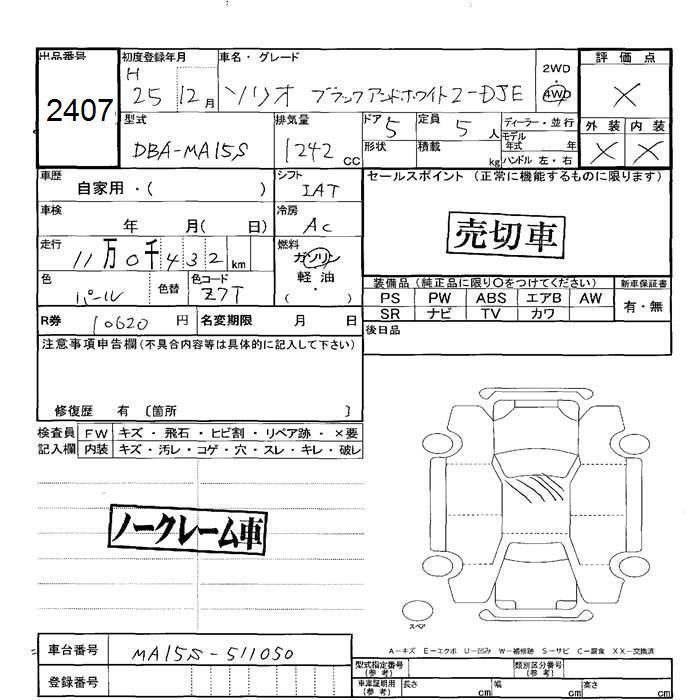 出品番号 初度登録年月 車名・グレード 2WD 評価点
2407 H 25 12月 ソリオ ブラックアンドホワイト2-DJE 4WD ×
型式 排気量 ドア 5 定員 5人 ディーラー・並行 外装 内装
DBA-MA15S 1242 CC 形状 積載 kg モデル年式 年 × ×
ハンドル 左・右
車歴 自家用・( ) シフト IAT セールスポイント (正常に機能するものに限ります)
車検 年 月( 日) 冷房 AC
売切車
走行 11万0千432km 燃料 ガソリン
軽油
・( )
色 パール 色替 色コード Z7T
装備品 (純正品に限り〇をつけてください) 新車保証書
PS PW ABS エアB AW 有・無
SR ナビ TV カワ
R券 10620円 名変期限 月 日 後日品
注意事項申告欄(不具合内容等は具体的に記入して下さい)
修復歴 有 〔箇所 〕
検査員 FW キズ・飛石・ヒビ割・リペア跡・×要
記入欄 内装 キズ・汚レ・コゲ・穴・スレ・キレ・破レ
ノークレーム車
スペア
A-キズ E-エクボ U-凹み W-補修跡 S-サビ C-腐食 XX-交換済
車台番号 MA15S-511050
型式指定番号(参考) 類別区分番号(参考)
登録番号
車庫証明用(参考) 長さ cm 幅 cm 高さ cm